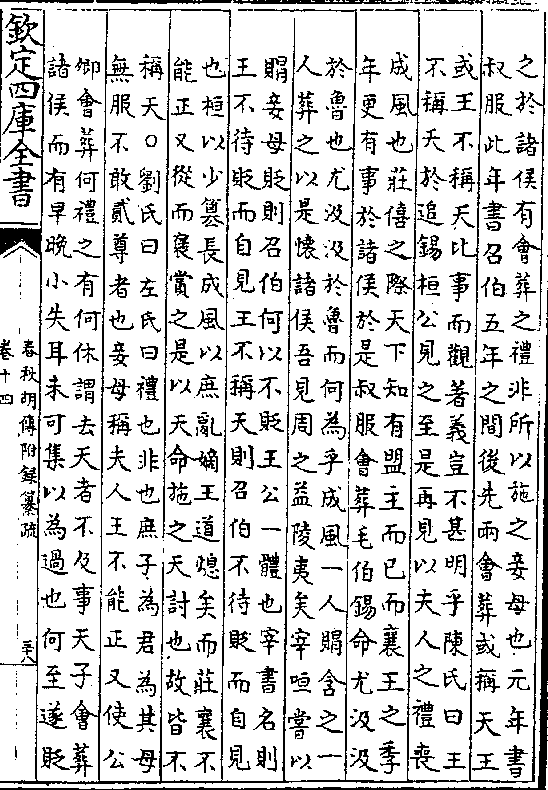 之於諸侯有會葬之禮非所以施之妾母也元年書
叔服此年書召伯五年之間後先兩會葬或稱天王
或王不稱天比事而觀著義豈不甚明乎陳氏曰王
不稱天於追錫桓公見之至是再見以夫人之禮喪
成風也莊僖之際天下知有盟主而已而襄王之季
年更有事於諸侯於是叔服會葬毛伯錫命尤汲汲
於魯也尤汲汲於魯而何為乎成風一人賵含之一
人葬之以是懷諸侯吾見周之益陵夷矣宰咺嘗以
賵妾母貶則召伯何以不貶王公一體也宰書名則
王不待貶而自見王不稱天則召伯不待貶而自見
也桓以少篡長成風以庶亂嫡王道熄矣而莊襄不
能正又從而褒賞之是以天命施之天討也故皆不
稱天○劉氏曰左氏曰禮也非也庶子為君為其母
無服不敢貳尊者也妾母稱夫人王不能正又使公
卿會葬何禮之有何休謂去天者不及事天子會葬
諸侯而有早晚小失耳未可集以為過也何至遂貶
欽定四庫全書
春秋胡傳附録纂疏
卷十四
三十八